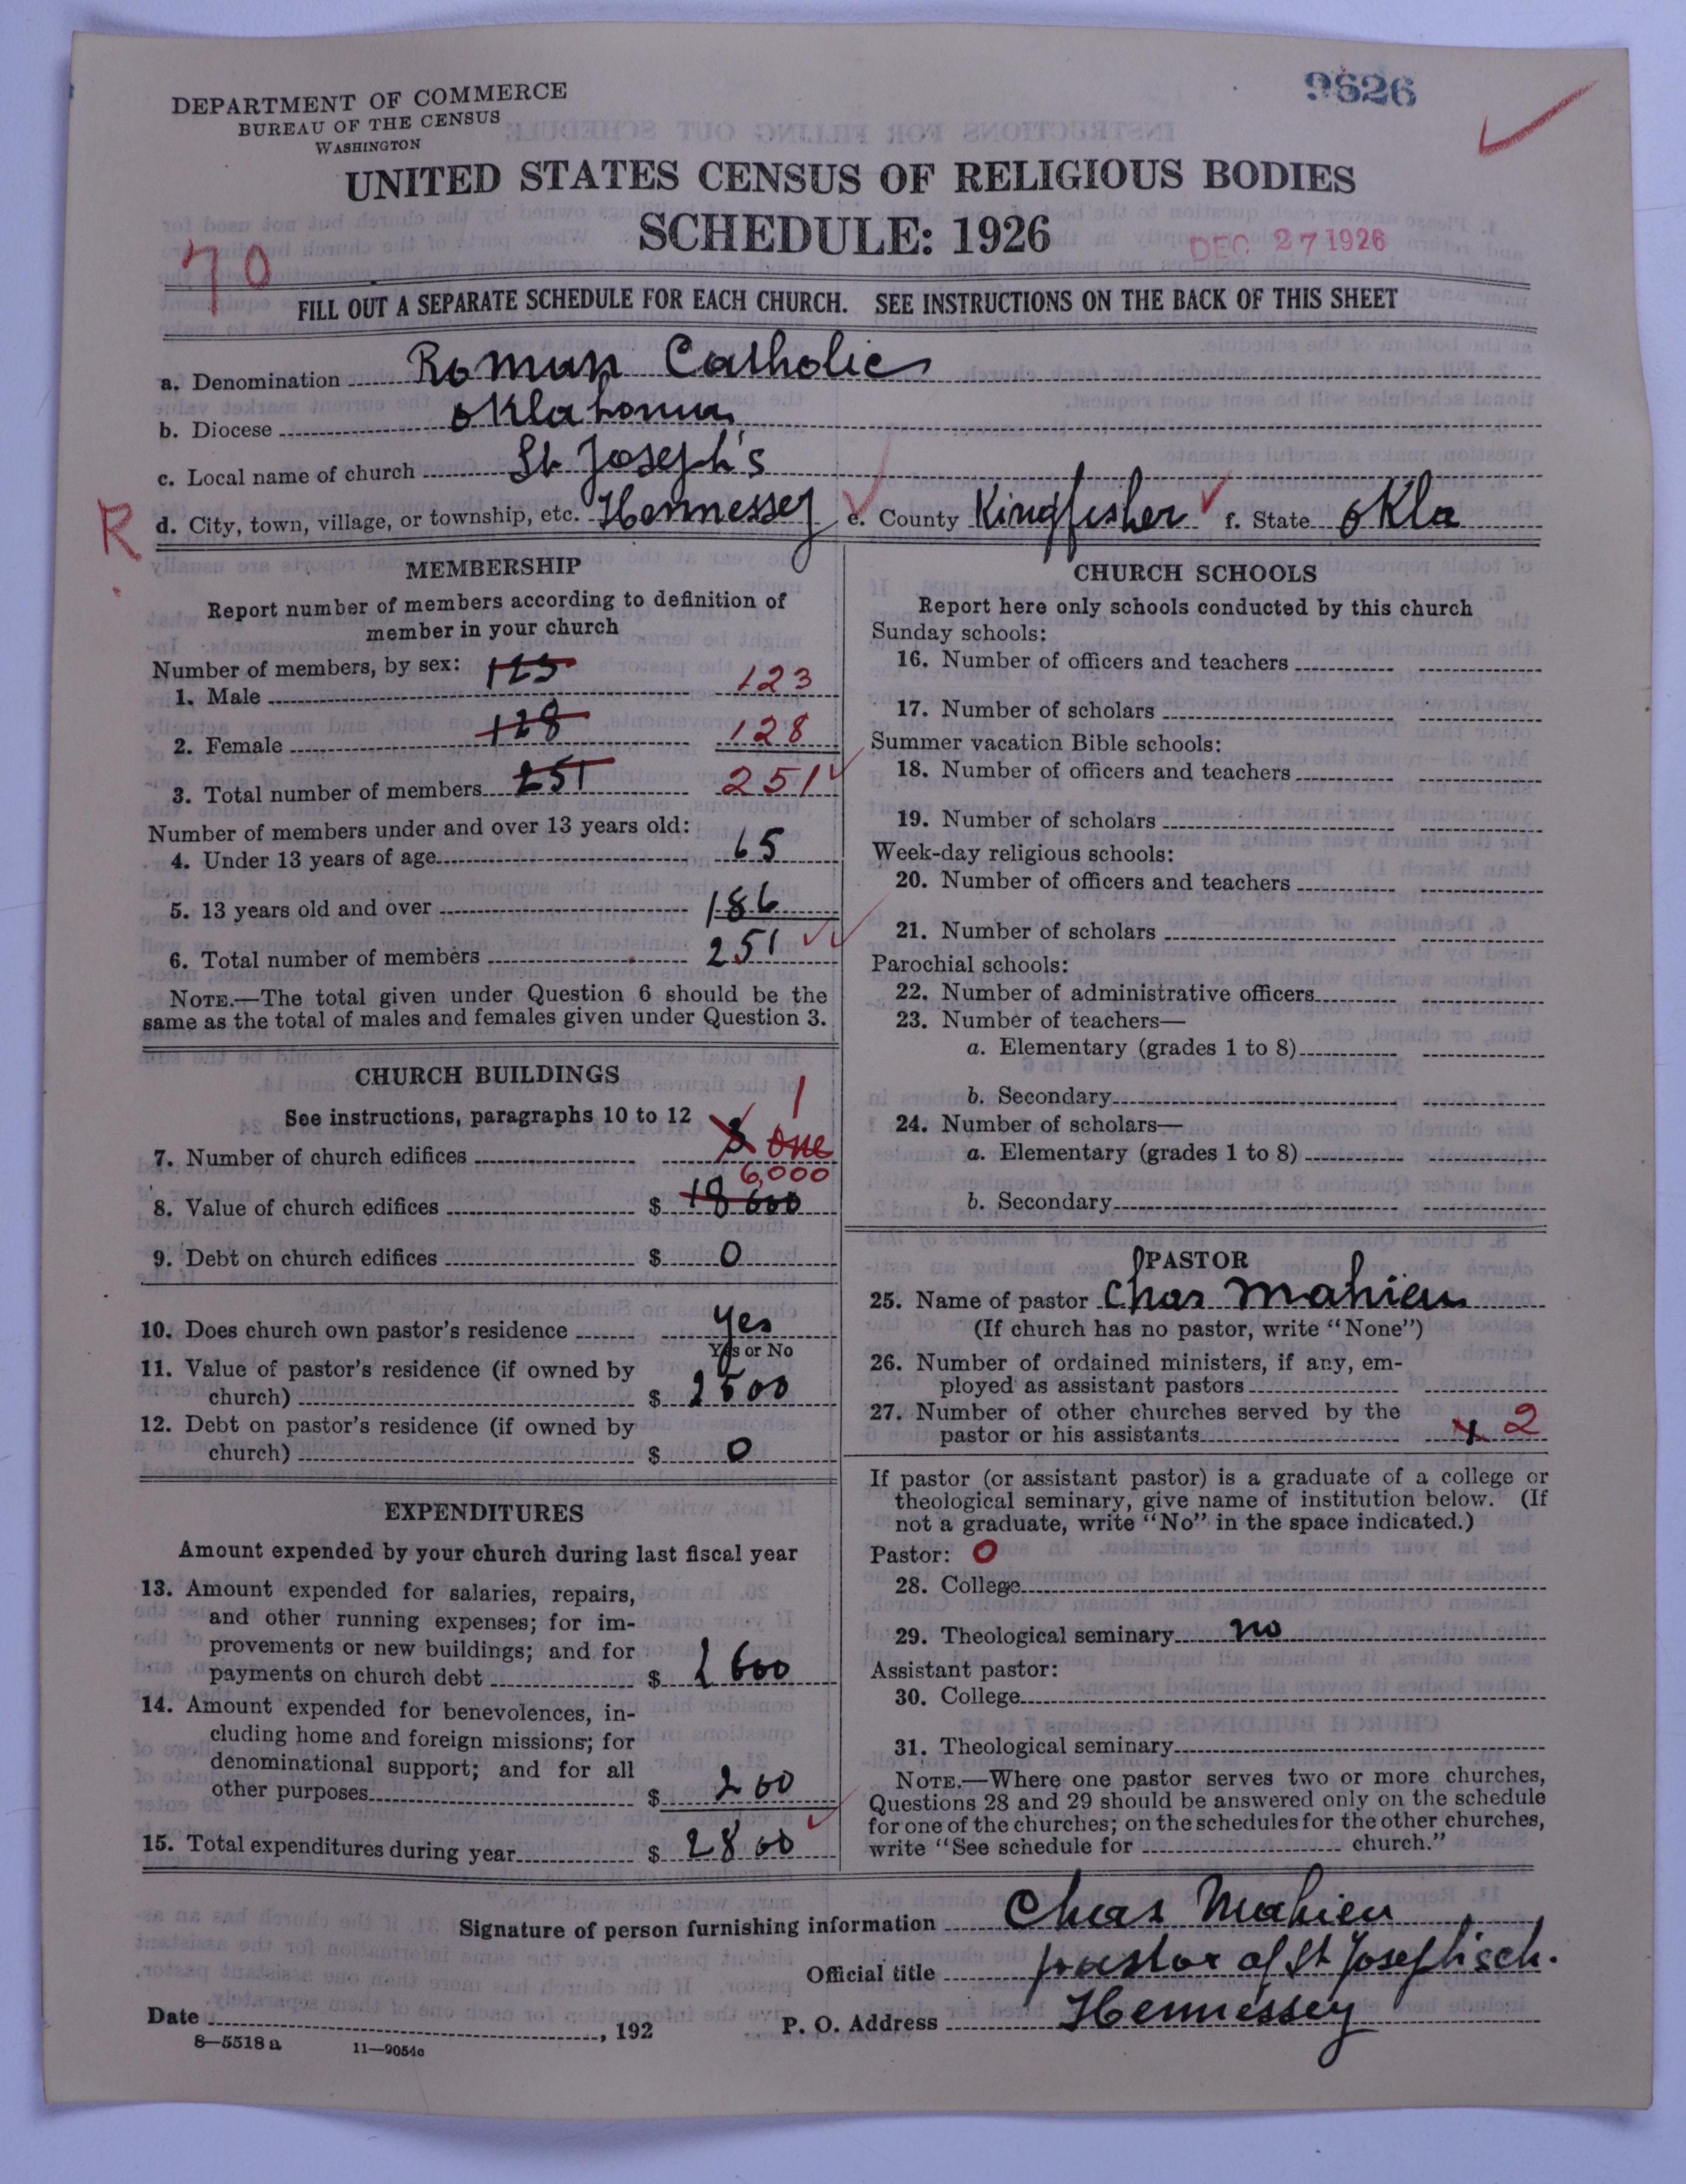 9526
DEPARTMENT OF COMMERCE
BUREAU OF THE CENSUS
WASHINGTON
UNITED STATES CENSUS OF RELIGIOUS BODIES
SCHEDULE: 1926
DEC 27 1926
70
FILL OUT A SEPARATE SCHEDULE FOR EACH CHURCH. SEE INSTRUCTIONS ON THE BACK OF THIS SHEET
a. Denomination Roman Catholic
b. Diocese Oklahoma
c. Local name of church St Joseph's
R
d. City, town, village, or township, etc. Hennessey e. County Kingfisher f. State Okla
MEMBERSHIP
Report number of members according to definition of
member in your church
Number of members, by sex:
1. Male 123 123
2. Female 128 128
3. Total number of members 251 251
Number of members under and over 13 years old:
4. Under 13 years of age 65
5. 13 years old and over 186
6. Total number of members 251
NOTE.—The total given under Question 6 should be the
same as the total of males and females given under Question 3.
CHURCH BUILDINGS
See instructions, paragraphs 10 to 12
1
7. Number of church edifices 3 One
6,000
8. Value of church edifices $ 18 600
9. Debt on church edifices $ 0
10. Does church own pastor's residence Yes
Yes or No
11. Value of pastor's residence (if owned by
church) $ 2500
12. Debt on pastor's residence (if owned by
church) $ 0
EXPENDITURES
Amount expended by your church during last fiscal year
13. Amount expended for salaries, repairs,
and other running expenses; for im-
provements or new buildings; and for
payments on church debt $ 2600
14. Amount expended for benevolences, in-
cluding home and foreign missions; for
denominational support; and for all
other purposes $ 200
15. Total expenditures during year $ 2800
CHURCH SCHOOLS
Report here only schools conducted by this church
Sunday schools:
16. Number of officers and teachers
17. Number of scholars
Summer vacation Bible schools:
18. Number of officers and teachers
19. Number of scholars
Week-day religious schools:
20. Number of officers and teachers
21. Number of scholars
Parochial schools:
22. Number of administrative officers
23. Number of teachers—
a. Elementary (grades 1 to 8)
b. Secondary
24. Number of scholars—
a. Elementary (grades 1 to 8)
b. Secondary
PASTOR
25. Name of pastor Chas Mahieu
(If church has no pastor, write "None")
26. Number of ordained ministers, if any, em-
ployed as assistant pastors
27. Number of other churches served by the
pastor or his assistants 2
If pastor (or assistant pastor) is a graduate of a college or
theological seminary, give name of institution below. (If
not a graduate, write "No" in the space indicated.)
Pastor: 0
28. College
29. Theological seminary no
Assistant pastor:
30. College
31. Theological seminary
NOTE.—Where one pastor serves two or more churches,
Questions 28 and 29 should be answered only on the schedule
for one of the churches; on the schedules for the other churches,
write "See schedule for church."
Signature of person furnishing information Chas Mahieu
Official title pastor of St Joseph's ch.
Date , 192 P. O. Address Hennessey
8—5518 a 11—9054c